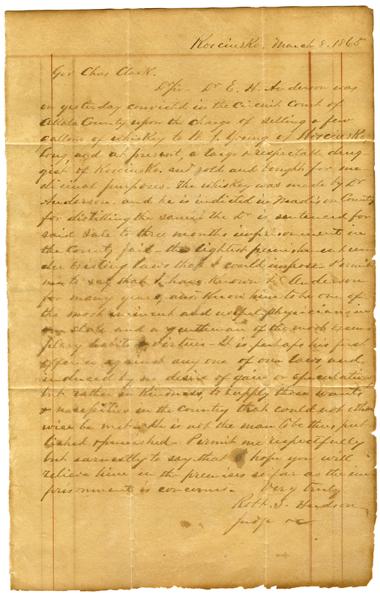 Kosciusko, March 8, 1865
Gov Chas Clark.
D Sir. Dr E. H. Anderson was
on yesterday convicted in the Circuit Court of
Attala County upon the charge of selling a few
gallons of whiskey to of Kosciusko
long and at present, a large & respectable drug
gist of Kosciusko, and sold and bought for me
dicinal purposes. The whiskey was made by Dr
Anderson. and he is indicted in Madison County
for distilling the same. The Dr is sentenced for
said sale to three months imprisonment in
the County jail - the lightest punishment un
der existing laws that I could impose. Permit
me to say that I have known Dr Anderson
for many years, and know him to be one of
the most eminent and useful physicians in
our state and a gentleman of the most exem
plary habits & virtues - It is, perhaps his first
offence against any one of our laws and
induced by no desire of gain or speculation
but rather in kindness, to supply those wants
& necessities in the country that could not other
wise be met. He is not the man to be thus pun
ished. Permit me respectfully
but earnestly to say that I hope you will
relieve him in the premises so far as the im
prisonment is concerned. Very truly
Robt. S. Hudson
Judge &c